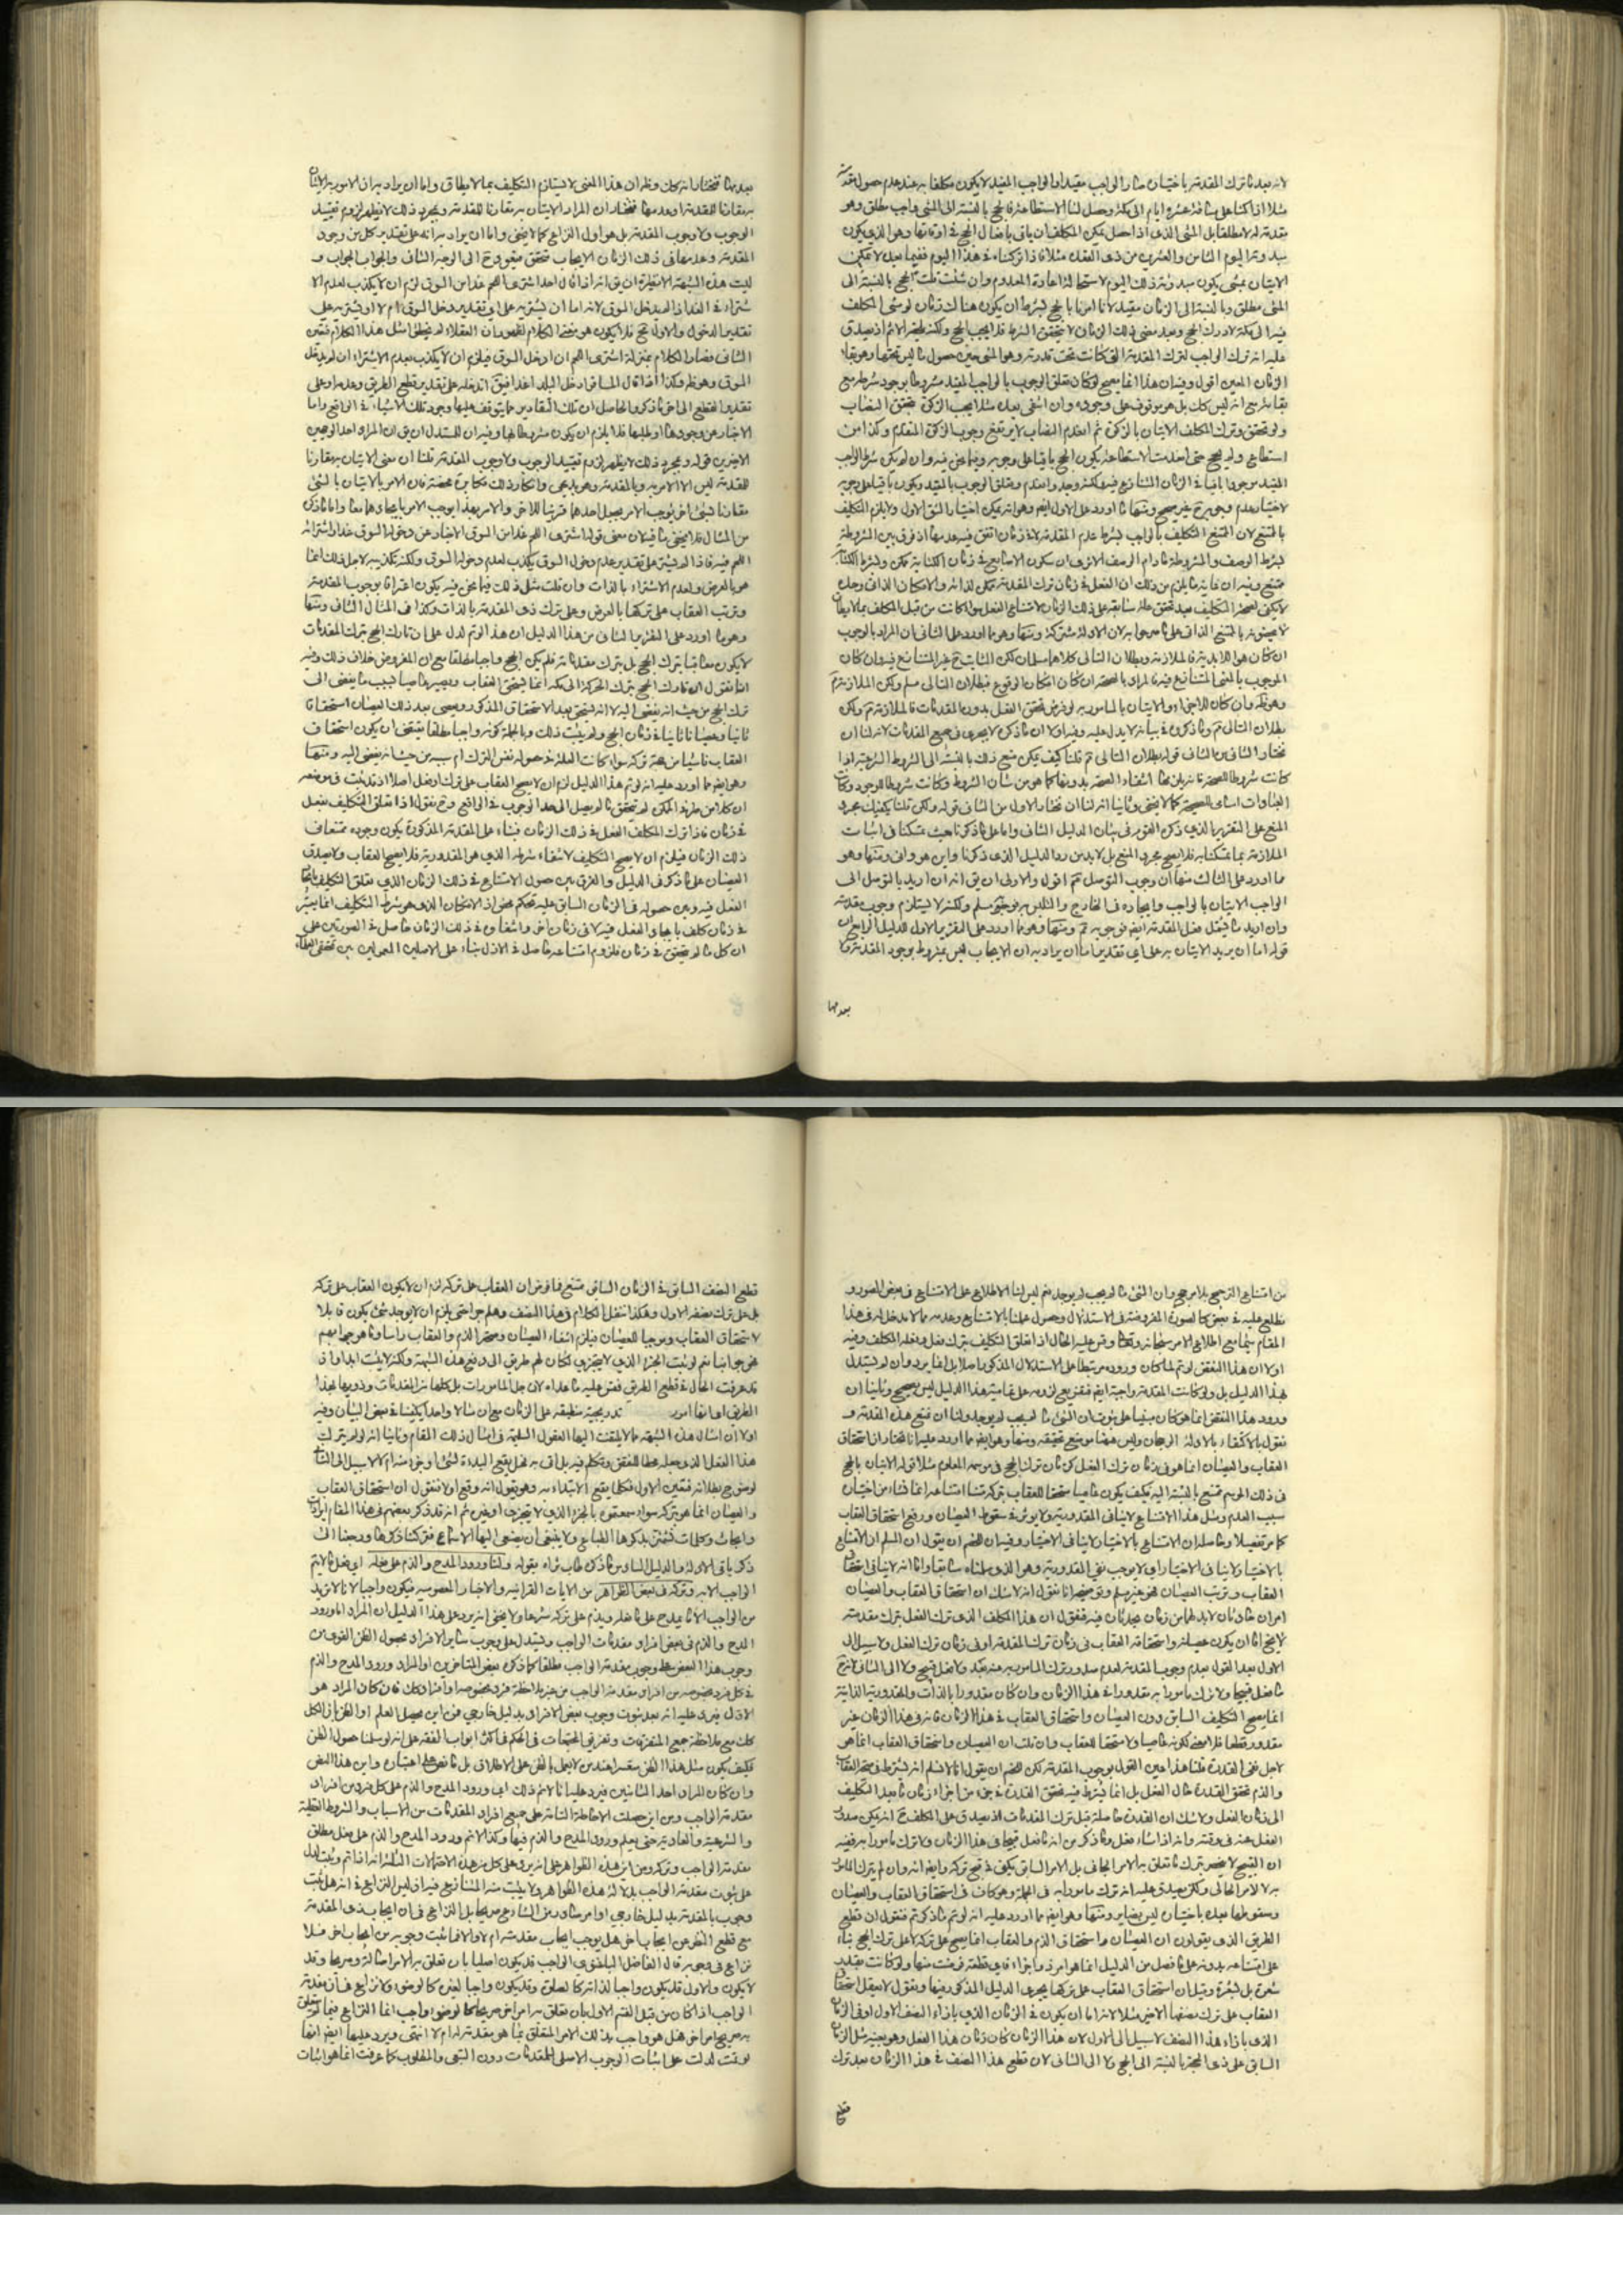 لانه بعد ترك المقدمة باختيان صار الواجب مقيدا والواجب المقيد لا يكون مكلفا به عند عدم حصول قيده
مثلا اذا كنا على مسافة عشرة ايام الى مكة وحصل لنا الاستطاعة فالحج بالنسبة الى المشي واجب مطلق وهو
مقدمة له لا مطلقا بل المشي الذي اذا حصل يمكن المكلف ان ياتي بافعال الحج في اوقاتها وهو الذي يكون
مبدؤه اليوم الثامن والعشرين من ذي القعدة مثلا فاذا تركناه في هذا اليوم ففيما بعد لا يمكن
الاتيان بمشي يكون مبدؤه ذلك اليوم لاستحالة اعادة المعدوم وان شئت قلت الحج بالنسبة الى
المشي مطلق وبالنسبة الى الزمان مقيد لانا امرنا بالحج بشرط ان يكون هناك زمان لو مشى المكلف
فيه الى مكة لادرك الحج وبعد مضي ذلك الزمان لا يتحقق الشرط فلا يجب الحج ولكنه يلحقه الاثم اذ يصدق
عليه انه ترك الواجب لترك المقدمة التي كانت تحت قدرته وهو المشي حين حصول
الزمان المعين اقول وفيه ان هذا انما يصح لو كان تعلق الوجوب بالواجب المقيد مشروطا بوجود شرطه مع
بقائه مع انه ليس كذلك بل هو موقوف على وجوده وان انتفى بعده مثلا يجب الزكوة بتحقق النصاب
ولو تحقق وترك المكلف الاتيان بالزكوة ثم انعدم النصاب لا يرتفع وجوب الزكوة المتقدم وكذا من
استطاع ولم يحج حتى انعدمت الاستطاعة يكون الحج باقيا على وجوبه وفيما نحن فيه وان لم يكن شرط الواجب
المقيد موجودا باقيا في الزمان المتنازع فيه ولكنه وجد وانعدم وتعلق الوجوب بالمقيد ويكون باقيا على وجوبه
بالممتنع لان الممتنع التكليف بالواجب بشرط عدم المقدمة لا في زمان اتفق فيه عدمها اذ فرق بين المشروطة
بشرط الوصف والمشروطة مادام الوصف الا ترى ان سكون الاصابع في زمان الكتابة ممكن وبشرط الكتابة
ممتنع وفيه ان غاية ما يلزم من ذلك ان الفعل في زمان ترك المقدمة ممكن لذاته والامكان الذاتي وحده
لا يكفي لصحة التكليف بعد تحقق علة سابقة على ذلك الزمان لامتناع الفعل سواء كانت من قبل المكلف
ان كان هو اللابدية فالملازمة وبطلان التالي كلاهما مسلمان لكن الثابت غير المتنازع فيه وان كان
الوجوب بالمعنى المتنازع فيه فالمراد بالصحة ان كان امكان الوقوع فبطلان التالي مسلم ولكن الملازمة
بطلان التالي ثم ما ذكروه في بيانه لا يدل عليه وفيه اولا ان ما ذكره لا يجري في جميع المقدمات لانه لنا ان
نختار الثاني من الثاني قوله بطلان التالي ثم قلنا كيف يمكن منع ذلك بالنسبة الى الشروط الشرعية اذا
كانت شروطا للصحة فانه يلزمها انتفاء الصحة بدونها كما هو من شان الشروط وكانت شروطا للوجود
المنع على التقرير الذي ذكره القوم في بيان الدليل الثاني واما على ما ذكرنا حيث تمسكنا في اثبات
الملازمة بما تمسكنا به فلا يصح مجرد المنع بل لا بد من رد الدليل الذي ذكرنا واين هو وان ومنها وهو
مما اورد على الثالث منها ان وجوب التوصل ثم اقول والاولى ان يق انه ان اريد بالتوصل الى
الواجب الاتيان بالواجب وايجاده في الخارج والتلبس به فوجوبه مسلم ولكنه لا يستلزم وجوب مقدمته
وان اريد ما يشمل فعل المقدمة ايضا فوجوبه ثم ومنها وهو مما اورد على التقرير الاول للدليل الرابع ان
قوله اما ان يريد الاتيان به على اي تقدير اما ان يراد به ان الايجاب ليس بمشروط بوجود المقدمة ولا
بعدمها
بعدمها فنختار انه كان وظ ان هذا المعنى لا يستلزم التكليف بما لا يطاق واما ان يراد به ان الامر به الاتيان
به مقارنا للمقدمة او بعدمها فنختار ان المراد الاتيان به مقارنا للمقدمة وبمجرد ذلك لا يظهر لزوم تقييد
الوجوب ولا وجوب المقدمة بل هو اول النزاع كما لا يخفى واما ان يراد به انه على تقدير كل من وجود
المقدمة وعدمها في ذلك الزمان الايجاب متحقق فهو رجع الى الوجه الثاني والجواب الجواب و
ليت هذه الشبهة الا نظيرة ان يق انه اذا قال احد اشتري اللحم غدا من السوق لزم ان لا يكذب لعدم الا
شتراء في الغد اذا لم يدخل السوق لانه اما ان يشتريه على اي تقدير دخل السوق ام لا او يشتريه على
تقدير الدخول والاول مح فلا يكون هو مقصد الكلام لقصود ان العقلاء لم يخطئ مثل هذا الكلام فتعين
الثاني فصار الكلام بمنزلة اشتري اللحم ان ادخل السوق فيلزم ان لا يكذب بعدم الاشتراء ان لم يدخل
السوق وهو ظ وكذا اذا قال المسافر ادخل البلد غدا فيق اتدخله على تقدير قطع الطريق وعدمه او على
تقدير القطع الى اخر ما ذكر والحاصل ان تلك التقادير مما يتوقف عليها وجود تلك الاشياء في الواقع واما
الاخبار عن وجودها او طلبها فلا يلزم ان يكون مشروطا بها وفيه ان للمستدل ان يق ان المراد احد الوجهين
الاخيرين قوله وبمجرد ذلك لا يظهر لزوم تقييد الوجوب ولا وجوب المقدمة قلنا ان معنى الاتيان به مقارنا
للمقدمة ليس الا الامر به وبالمقدمة وهو بديهي وانكار ذلك مكابرة محضة فان الامر بالاتيان بالشيء
مقارنا لشيء اخر يوجب الامر بجعل احدهما قرينا للاخر والامر بهذا يوجب الامر بايجادهما معا واما ما ذكره
من المثال فلا يخفى ما فيه لان معنى قوله اشتري اللحم غدا من السوق الاخبار عن دخول السوق غدا واشترائه
اللحم فيه فاذا لم يشتر على تقدير عدم دخول السوق يكذب لعدم دخوله السوق ولكنه تكذيبه لاجل ذلك انما
هو بالعرض ولعدم الاشتراء بالذات وان قلت مثل ذلك فيما نحن فيه يكون اعترافا بوجوب المقدمة
وترتب العقاب على تركها بالعرض وعلى ترك ذي المقدمة بالذات وكذا في المثال الثاني ومنها
وهو مما اورد على التقرير الثاني من هذا الدليل ان هذا لو تم لدل على ان تارك الحج بترك المقدمات
لا يكون معاقبا بترك الحج بل بترك مقدماته فلم يكن الحج واجبا مطلقا مع ان المفروض خلاف ذلك وفيه
انا نقول ان تارك الحج بترك الحركة الى مكة انما يستحق العقاب ويصير عاصيا بسبب ما يفضي الى
ترك الحج من حيث انه يفضي اليه لا انه يستحق بعد الاستحقاق المذكور ويعصي بعد ذلك العصيان استحقاقا
ثانيا وعصيانا ثانيا في زمان الحج ولم يثبت ذلك وبالجملة كونه واجبا مطلقا يقتضي ان يكون استحقاق
العقاب ناشيا من جهة تركه سواء كانت العلة في حصوله نفس الترك ام سببه من حيث انه يفضي اليه ومنها
وهو ايضا مما اورد عليه انه لو تم هذا الدليل لزم ان لا يصح العقاب على ترك او فعل اصلا اذ قد ثبت في موضعه
ان كلا من طرفي الممكن لم يتحقق ما لم يصل الى حد الوجوب في الواقع وح نقول اذا تعلق التكليف بفعل
في زمان فاذا ترك المكلف الفعل في ذلك الزمان فبناء على المقدمة المذكورة يكون وجوده ممتنعا في
ذلك الزمان فيلزم ان لا يصح التكليف لانتفاء شرطه الذي هو المقدورية فلا يصح العقاب ولا يصدق
العصيان على ما ذكر في الدليل والفرق بين حصول الامتناع في ذلك الزمان الذي تعلق التكليف بايجاد
الفعل فيه وبين حصوله في الزمان السابق عليه تحكم محض اذ الامكان الذي هو شرط التكليف انما يعتبر
في زمان كلف بايجاد الفعل فيه لا في زمان اخر وانتفاؤه في ذلك الزمان حاصل في الصورتين على
ان كل ما لم يتحقق في زمان فلزوم امتناعه حاصل في الازل بناء على الاصلين المعمولين من تحقق العلة
من امتناع الترجيح بلا مرجح وان الشيء ما لم يجب لم يوجد نعم ليس لنا الاطلاع على الامتناع في بعض الصور و
نطلع عليه في بعض كالصورة المفروضة في الاستدلال وحصول علمنا بالامتناع وعدمه مما لا مدخل له في هذا
المقام سيما مع اطلاع الامر سبحانه وتعالى وقس عليه الحال اذا تعلق التكليف بترك فعل وفعله المكلف وفيه
اولا ان هذا النقض لو تم لما كان وروده مرتبطا على الاستدلال المذكور اصلا بل انما يرد وان لم يستدل
بهذا الدليل بل ولو كانت المقدمة واجبة ايضا
ورود هذا النقض انما هو كان مبنيا على ثبوت ان الشيء ما لم يجب لم يوجد ولنا ان نمنع هذه المقدمة و
نقول بالاكتفاء بالاولية الرجحان وليس ههنا موضع تحقيقه ومنها وهو ايضا مما اورد عليه انا نختار ان استحقاق
العقاب والعصيان انما هو في زمان ترك الفعل كزمان ترك الحج في موسمه المعلوم مثلا قوله الاتيان بالحج
في ذلك اليوم ممتنع بالنسبة اليه فكيف يكون عاصيا مستحقا للعقاب بتركه قلنا امتناعه انما نشأ من اختيان
سبب العدم ومثل هذا الامتناع لا ينافي المقدورية ولا يؤثر في سقوط العصيان ورفع استحقاق العقاب
كما مر تفصيلا وحاصله ان الامتناع بالاختيار لا ينافي الاختيار وفيه ان للخصم ان يقول ان المسلم ان الامتناع
بالاختيار لا ينافي الاختيار اي لا يوجب نفي القدرية وهو الذي سلمناه سابقا واما انه لا ينافي استحقاق
العقاب وترتب العصيان فهو غير مسلم وتوضيحه انا نقول انه لا شك ان استحقاق العقاب والعصيان
امران حادثان لا بد لهما من زمان يحدثان فيه فنقول ان هذا المكلف الذي ترك الفعل بترك مقدمته
لا يخ اما ان يكون عصيانه واستحقاقه العقاب في زمان ترك المقدمة او في زمان ترك الفعل ولا سبيل الى
الاول بعد القول بعدم وجوب المقدمة لعدم صدور ترك المامور به عنه بعد ولا فعل قبيح ولا الى الثاني لانه ح
ما فعل قبيحا ولا ترك مامورا به مقدورا في هذا الزمان وان كان مقدورا بالذات والمقدورية الذاتية
انما يصح التكليف السابق دون العصيان واستحقاق العقاب في هذا الزمان فانه في هذا الزمان غير
مقدور قطعا فلا معنى لكونه عاصيا ولا مستحقا للعقاب وان قلت ان العصيان واستحقاق العقاب انما هو
لاجل نفي القدرة قلنا هذا عين القول بوجوب المقدمة لكن للخصم ان يقول انا لا نسلم انه يشترط في صحة العقاب
والذم تحقق القدرة حال الفعل بل انما يشترط فيه تحقق القدرة في جزء من اجزاء زمان ما بعد التكليف
الى زمان الفعل ولا شك ان القدرة حاصلة قبل ترك المقدمات اذ يصدق على المكلف ح انه يمكن صدور
الفعل عنه في وقته وانه اذا شاء فعل وما ذكر من انه ما فعل قبيحا في هذا الزمان ولا ترك مامورا به ففيه
ان القبيح لا ينحصر بترك ما تعلق به الامر الحالي بل الامر السابق يكفي في قبح تركه وايضا انه وان لم يترك المامور
به لا لامر الحالي ولكن يصدق عليه انه ترك مامورا به في الجملة وهو كاف في استحقاق العقاب والعصيان
وسقوطها بعده باختيان ليس بضاير ومنها وهو ايضا مما اورد عليه انه لو تم ما ذكرتم فنقول ان قطع
الطريق الذي يقولون ان العصيان واستحقاق الذم والعقاب انما يصح على تركه لا على ترك الحج بناء
على امتناعه بدونه على ما فصل من الدليل انما هو امر ذو اجزاء فاي قطعة فرضت منها ولو كانت بمقدار
شعرة بل بشرة وقيل ان استحقاق العقاب على تركها يجري الدليل المذكور فيها ونقول لا يعقل استحقاق
العقاب على ترك نصفها الاخير مثلا لانه اما ان يكون في الزمان الذي بازاء النصف الاول او في الزمان
الذي بازاء هذا النصف لا سبيل الى الاول لان هذا الزمان كان زمان هذا الفعل وهو بعينه مثل الزمان
السابق على ذي الحجة بالنسبة الى الحج ولا الى الثاني لان قطع هذا النصف في هذا الزمان بعد ترك
قطع
قطع النصف السابق في الزمان السابق ممتنع فما فرض ان العقاب على تركه لزم ان لا يكون العقاب على تركه
بل على ترك نصفه الاول وهكذا ننقل الكلام في هذا النصف وهلم جرا حتى يلزم ان لا يوجد شيء يكون قابلا
لاستحقاق العقاب وموجبا للعصيان فيلزم انتفاء العصيان وصحة الذم والعقاب راسا وما هو جوابهم
فهو جوابنا نعم لو ثبت الجزء الذي لا يتجزى لكان لهم طريق الى دفع هذه الشبهة ولكنه لا يثبت ابدا و اذا
قد عرفت الحال في قطع الطريق فقس عليه ما عداه لان جل المامورات بل كلها من المقدمات وذويها بهذا
الطريق اما انها امور تدريجية منطبقة على الزمان مع ان مثالا واحدا يكفينا في بعض البيان وفيه
اولا ان امثال هذه الشبهة مما لا يلتفت اليها العقول السليمة في امثال ذلك المقام وثانيا انه لو لم يترك
لوضوح بطلانه فتعين الاول فكلما يقع الابتداء به وهو يقول انه وقع اولا نقول ان استحقاق العقاب
والعصيان انما هو بتركه سواء سمعتموه بالجزء الذي لا يتجزى او غيره ثم انه قد ذكر بعضهم في هذا المقام ايرادات
وابحاث وكلمات تشمئز بذكرها الطباع ولا ينبغي ان يصغي اليها الاسماع فتركنا ذكرها ورجعنا الى
ذكر باقي الادلة والدليل السادس ما ذكره طاب ثراه بقوله ولنا ورود المدح والذم على فعله اي فعل ما لا يتم
الواجب الا به وتركه في بعض الظواهر من الايات القرانية والاخبار المعصومية فيكون واجبا لانا لا نريد
من الواجب الا ما يمدح على فاعله ويذم على تركه شرعا ولا يخفى انه يرد على هذا الدليل ان المراد اما ورود
المدح والذم في بعض افراد مقدمات الواجب ويستدل على وجوب سائر الافراد بحصول الظن القوي من
وجوب هذا البعض على وجوب مقدمة الواجب مطلقا كما ذكره بعض المتاخرين او المراد ورود المدح والذم
في كل فرد بخصوصه من افراد مقدمة الواجب من غير ملاحظة فرد بخصوصه او افراد كذلك فان كان المراد هو
الاول فيرد عليه انه بعد ثبوت وجوب بعض الافراد بدليل خارجي فمن اين يحصل العلم او الظن بان الكل
كذلك مع ملاحظة جميع المتفرقات وتفريق المجتمعات في الحكم في اكثر ابواب الفقه على انه لو سلمنا حصول الظن
فكيف يكون مثل هذا الظن معتبرا عند من لا يعمل بالظن على الاطلاق بل ما نص على اعتباره واين هذا النص
وان كان المراد احد الثانيين فيرد عليه انا لا نعلم ذلك اي ورود المدح والذم على كل فرد من افراد
مقدمة الواجب ومن اين حصلت الاحاطة التامة على جميع افراد المقدمات من الاسباب والشروط العقلية
والشرعية والعادية حتى يعلم ورود المدح والذم فيها وكذا لا نعلم ورود المدح والذم على فعل مطلق
مقدمة الواجب وتركه ومن اين هذه الظواهر على انه يرد على كل من هذه الاحتمالات الثلثة انه اذا تم ويثبت لدل
على ثبوت مقدمة الواجب بدلالة هذه الظواهر ولا يثبت منه المتنازع فيه اذ ليس النزاع في انه هل ثبت
وجوب بالمقدمة بدليل خارجي او امر صادر من الشارع صريحا بل النزاع في ان ايجاب ذي المقدمة
مع قطع النظر عن ايجاب اخر هل يوجب ايجاب مقدمته ام لا والا فما ثبت وجوبه من ايجاب اخر فلا
نزاع في وجوبه قال الفاضل الباغنوي الواجب قد يكون اصليا بان تعلق به الامر اصالة وصريحا وقد
لا يكون والاول قد يكون واجبا لذاته كالصلوة وقد يكون واجبا لغيره كالوضوء ولا نزاع في ان مقدمة
الواجب اذا كان من قبل القسم الاول بان تعلق به امر اخر صريحا كالوضوء واجب انما النزاع فيما لم يتعلق
به صريح امر اخر هل هو واجب بذلك الامر المتعلق بما هو مقدمة له ام لا انتهى ويرد عليها ايضا انها
لو تمت لدلت على اثبات الوجوب الاصلي للمقدمات دون التبعي والمطلوب كما عرفت انما هو اثبات